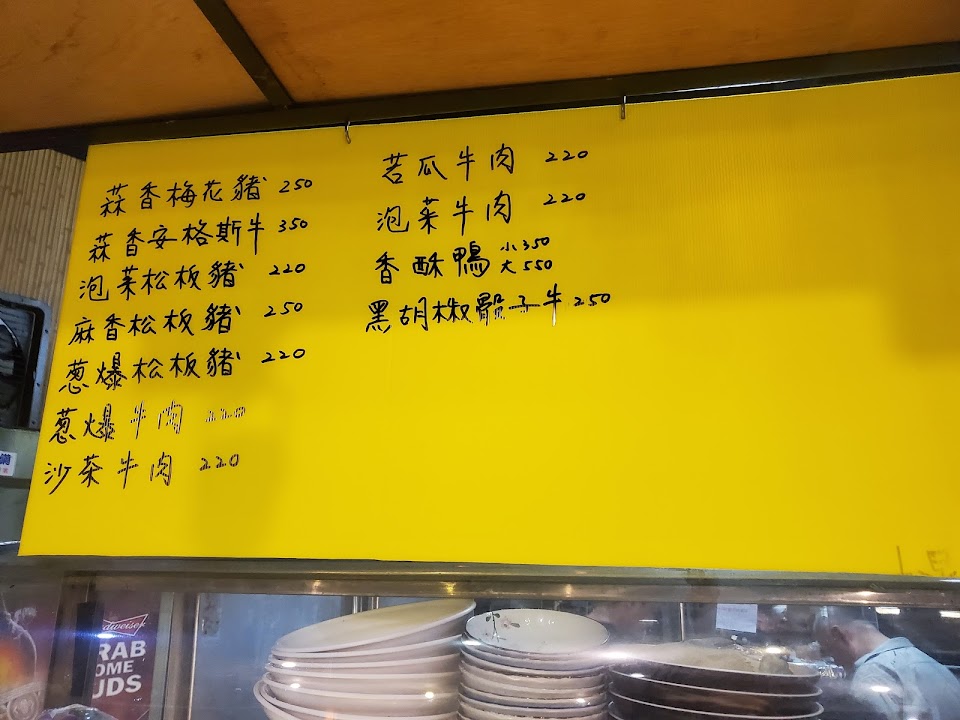 蒜香梅花豬 250
蒜香安格斯牛 350
泡菜松板豬 220
麻香松板豬 250
葱爆松板豬 220
葱爆牛肉 220
沙茶牛肉 220
苦瓜牛肉 220
泡菜牛肉 220
香酥鴨 小350
大550
黑胡椒骰子牛 250
Budweiser
GRAB
SOME
BUDS